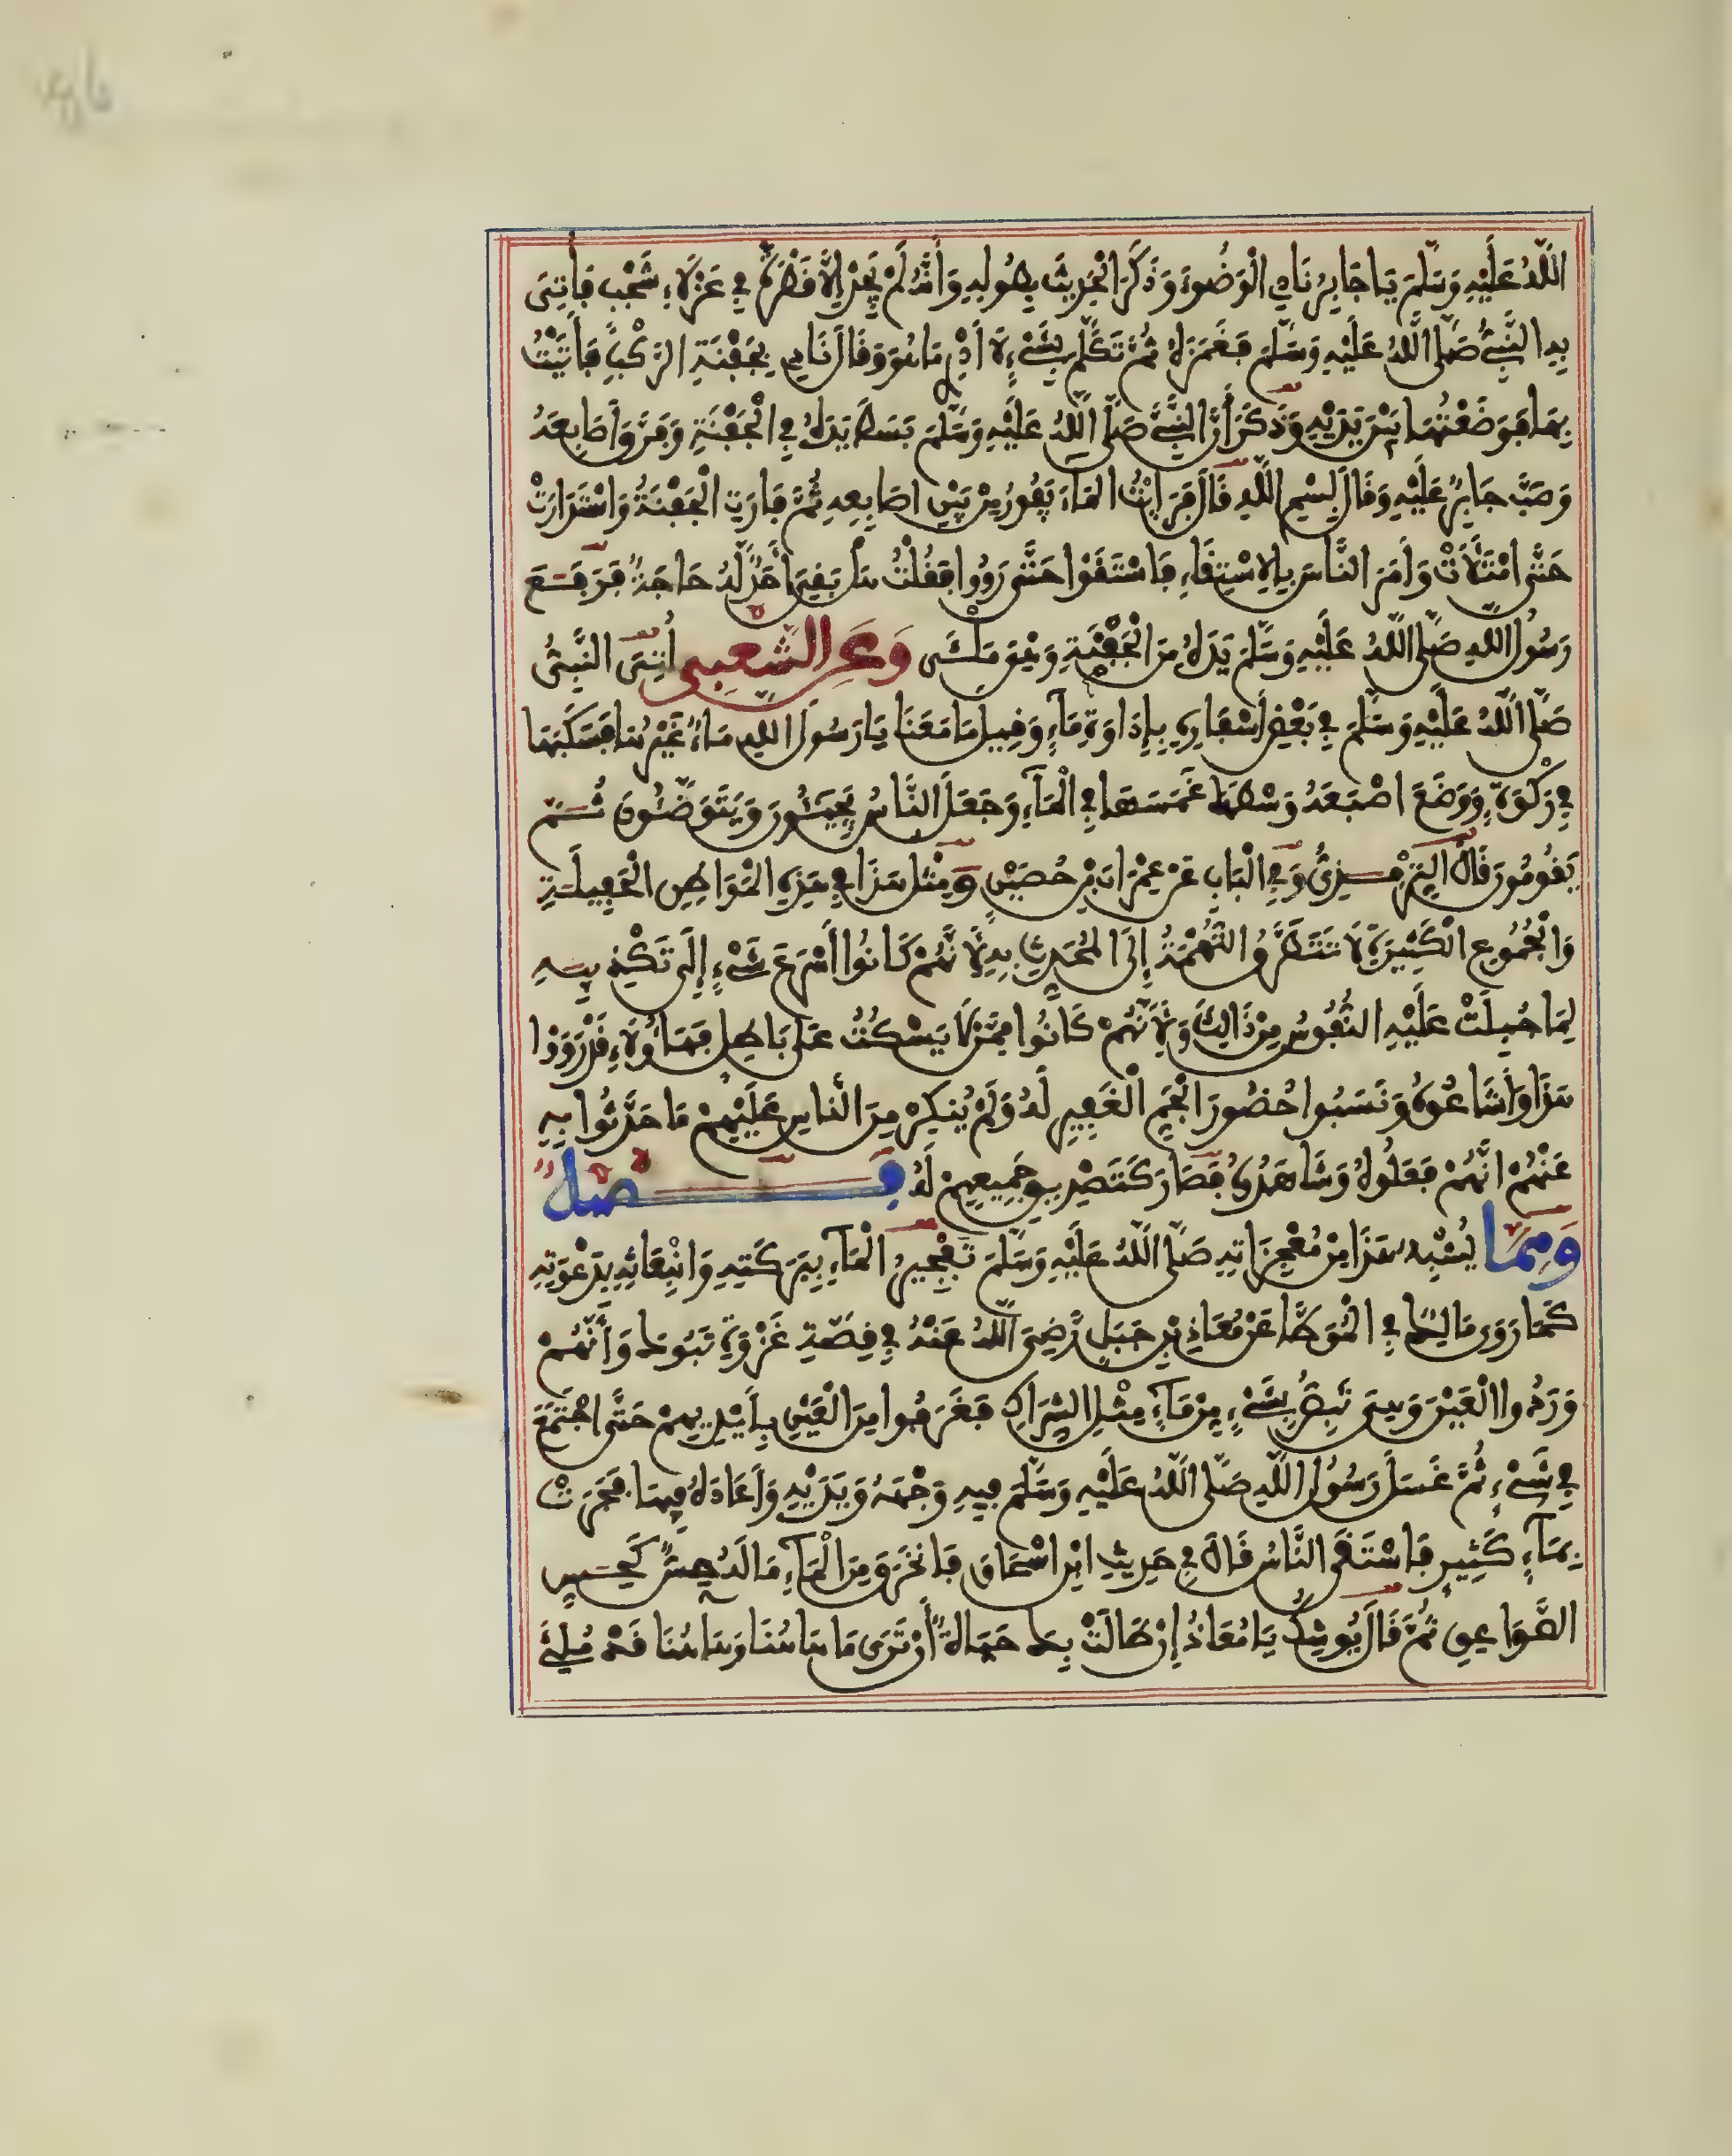 اللَّهُ عَلَيْهِ وَسَلَّمَ يَا جَابِرُ نَادِ الْوَضُوءَ وَذَكَرَ الْحَدِيثَ بِطُولِهِ وَأَنَّهُ لَمْ يَجِدْ إِلَّا قَطْرَةً فِي عَزْلَاءِ شَجْبٍ فَأُتِيَ
بِهِ النَّبِيُّ صَلَّى اللَّهُ عَلَيْهِ وَسَلَّمَ فَغَمَزَهُ ثُمَّ تَكَلَّمَ بِشَيْءٍ لَا أَدْرِ مَا هُوَ وَقَالَ نَادِ بِجَفْنَةِ الرَّكْبِ فَأَتَيْتُ
بِهَا فَوَضَعْتُهَا بَيْنَ يَدَيْهِ وَذَكَرَ أَنَّ النَّبِيَّ صَلَّى اللَّهُ عَلَيْهِ وَسَلَّمَ بَسَطَ يَدَهُ فِي الْجَفْنَةِ وَفَرَّقَ أَصَابِعَهُ
وَصَبَّ جَابِرٌ عَلَيْهِ وَقَالَ بِسْمِ اللَّهِ قَالَ فَرَأَيْتُ الْمَاءَ يَفُورُ مِنْ بَيْنِ أَصَابِعِهِ ثُمَّ فَارَتِ الْجَفْنَةُ وَاسْتَدَارَتْ
حَتَّى امْتَلَأَتْ وَأَمَرَ النَّاسَ بِالِاسْتِقَاءِ فَاسْتَقَوْا حَتَّى رَوُوا فَقُلْتُ هَلْ بَقِيَ أَحَدٌ لَهُ حَاجَةٌ فَرَفَعَ
رَسُولُ اللهِ صَلَّى اللَّهُ عَلَيْهِ وَسَلَّمَ يَدَهُ مِنَ الْجَفْنَةِ وَهِيَ مَلْأَى وَعَنِ الشَّعْبِيِّ أُتِيَ النَّبِيُّ
صَلَّى اللَّهُ عَلَيْهِ وَسَلَّمَ فِي بَعْضِ أَسْفَارِهِ بِإِدَاوَةِ مَاءٍ وَقِيلَ مَا مَعَنَا يَا رَسُولَ اللهِ مَاءٌ غَيْرُهَا فَسَكَبَهَا
فِي رَكْوَةٍ وَوَضَعَ اصْبَعَهُ وَسْطَهَا غَمَسَهَا فِي الْمَاءِ وَجَعَلَ النَّاسُ يَجِيئُونَ وَيَتَوَضَّئُونَ ثُمَّ
يَقُومُونَ قَالَ التِّرْمِذِيُّ وَفِي الْبَابِ عَنْ عِمْرَانَ بْنِ حُصَيْنٍ وَمِثْلُ هَذَا فِي هَذِهِ الْمَوَاطِنِ الْحَفِيلَةِ
وَالْجُمُوعِ الْكَثِيرَةِ لَا تَتَطَرَّقُ التُّهْمَةُ إِلَى الْمُحَدِّثِ بِهِ لِأَنَّهُمْ كَانُوا أَسْرَعَ شَيْءٍ إِلَى تَكْذِيبِهِ
لِمَا جُبِلَتْ عَلَيْهِ النُّفُوسُ مِنْ ذَالِكَ وَلِأَنَّهُمْ كَانُوا مِمَّنْ لَا يَسْكُتُ عَلَى بَاطِلٍ فَهَؤُلَاءِ قَدْ رَوَوْا
هَذَا وَأَشَاعُوهُ وَنَسَبُوا حُضُورَ الْجَمِّ الْغَفِيرِ لَهُ وَلَمْ يُنْكِرْ مِنَ النَّاسِ عَلَيْهِمْ مَا حَدَّثُوا بِهِ
عَنْهُمْ أَنَّهُمْ فَعَلُوهُ وَشَاهَدُوهُ فَصَارَ كَتَصْدِيقِ جَمِيعِهِمْ لَهُ فَصْلٌ
وَمِمَّا يُشْبِهُ هَذَا مِنْ مُعْجِزَاتِهِ صَلَّى اللَّهُ عَلَيْهِ وَسَلَّمَ تَفْجِيرُ الْمَاءِ بِبَرَكَتِهِ وَانْبِعَاثُهِ بِدَعْوَتِهِ
كَمَا رَوَى مَالِكٌ فِي الْمُوَطَّإِ عَنْ مُعَاذِ بْنِ جَبَلٍ رَضِيَ اللَّهُ عَنْهُ فِي قِصَّةِ غَزْوَةِ تَبُوكَ وَأَنَّهُمْ
وَرَدُوا الْعَيْنَ وَهِيَ تَبِضُّ بِشَيْءٍ مِنْ مَاءٍ مِثْلِ الشِّرَاكِ فَغَرَفُوا مِنَ الْعَيْنِ بِأَيْدِيهِمْ حَتَّى اجْتَمَعَ
فِي شَيْءٍ ثُمَّ غَسَلَ رَسُولُ اللَّهِ صَلَّى اللَّهُ عَلَيْهِ وَسَلَّمَ فِيهِ وَجْهَهُ وَيَدَيْهِ وَأَعَادَهُ فِيهَا فَجَرَتْ
بِمَاءٍ كَثِيرٍ فَاسْتَقَى النَّاسُ قَالَ فِي حَدِيثِ ابْنِ اسْحَاقَ فَانْخَرَقَ مِنَ الْمَاءِ مَا لَهُ حِسٌّ كَحِسِّ
الصَّوَاعِقِ ثُمَّ قَالَ يُوشِكُ يَا مُعَاذُ إِنْ طَالَتْ بِكَ حَيَاةٌ أَنْ تَرَى مَا هَاهُنَا قَدْ مُلِئَ